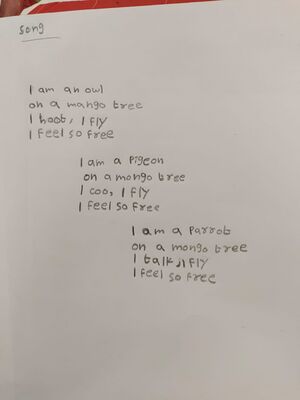 song
I am an owl
on a mango tree
I hoot, I fly
I feel so free
I am a pigeon
on a mongo tree
I coo, I fly
I feel so free
I am a parrot
on a mongo tree
I talk, I fly
I feel so free